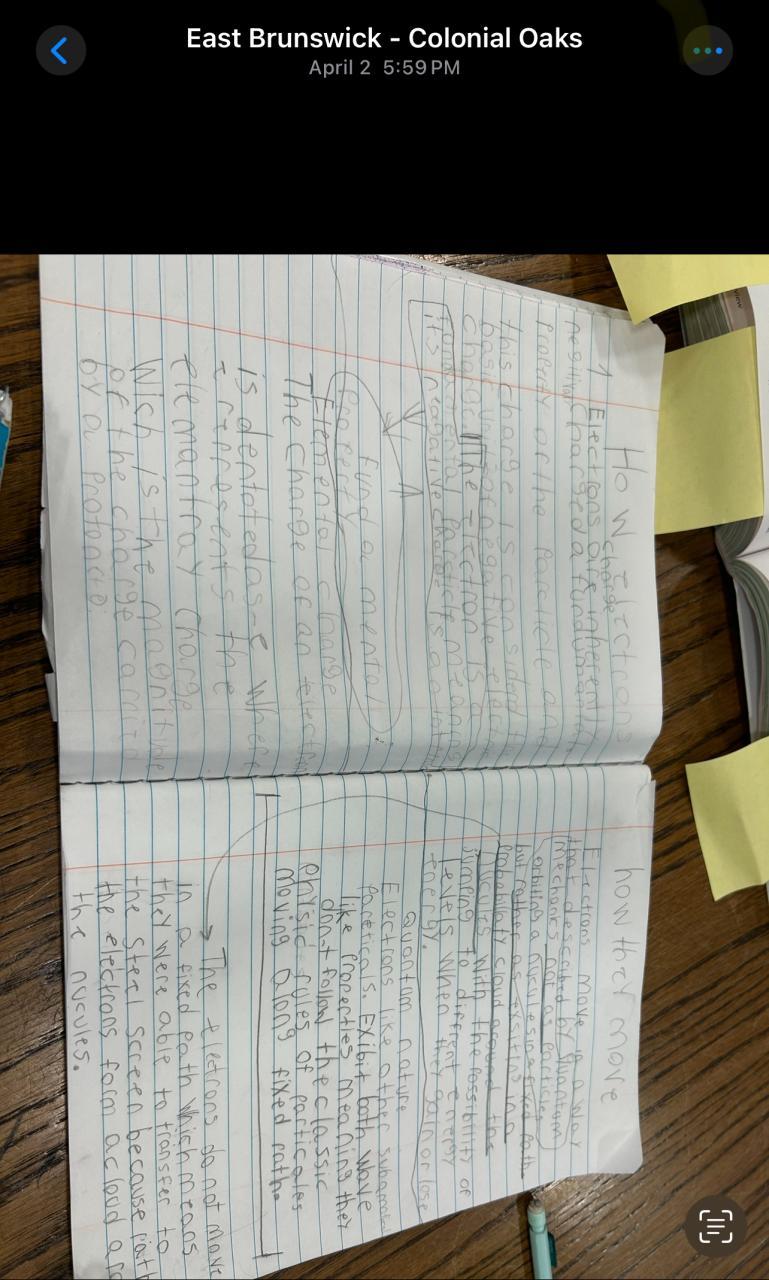 East Brunswick - Colonial Oaks
April 2 5:59 PM
view
How electrons
charge
1 Electrons are inherently
charged a fundamental
property of the particle and
this charge is considered the
basic negative
charge The -electron is a
its negative charge is an
fundamental
property
Elemental charge
The charge of an electron
is dentated as -e where
represents the
elemantray charge
Wich is the magnitude
of the charge carried
by a protead.
how they move
Electrons move in a way
that described by quantum
mechanics not as particles
orbiting a in a fixed path
but rather as exsiting in a
probabilaty cloud around the
nucules with the possibility of
Jumping to different energy
levels when they gain or lose
energy.
Quantum nature
Electrons like other
Exibit both wave
like properties meaning they
don-t follow the classic
physic rules of particales
moving along fixed paths
The electrons do not move
in a fixed path which means
they were able to transfer to
the steel screen because
the electrons form a cloud
the nucules.